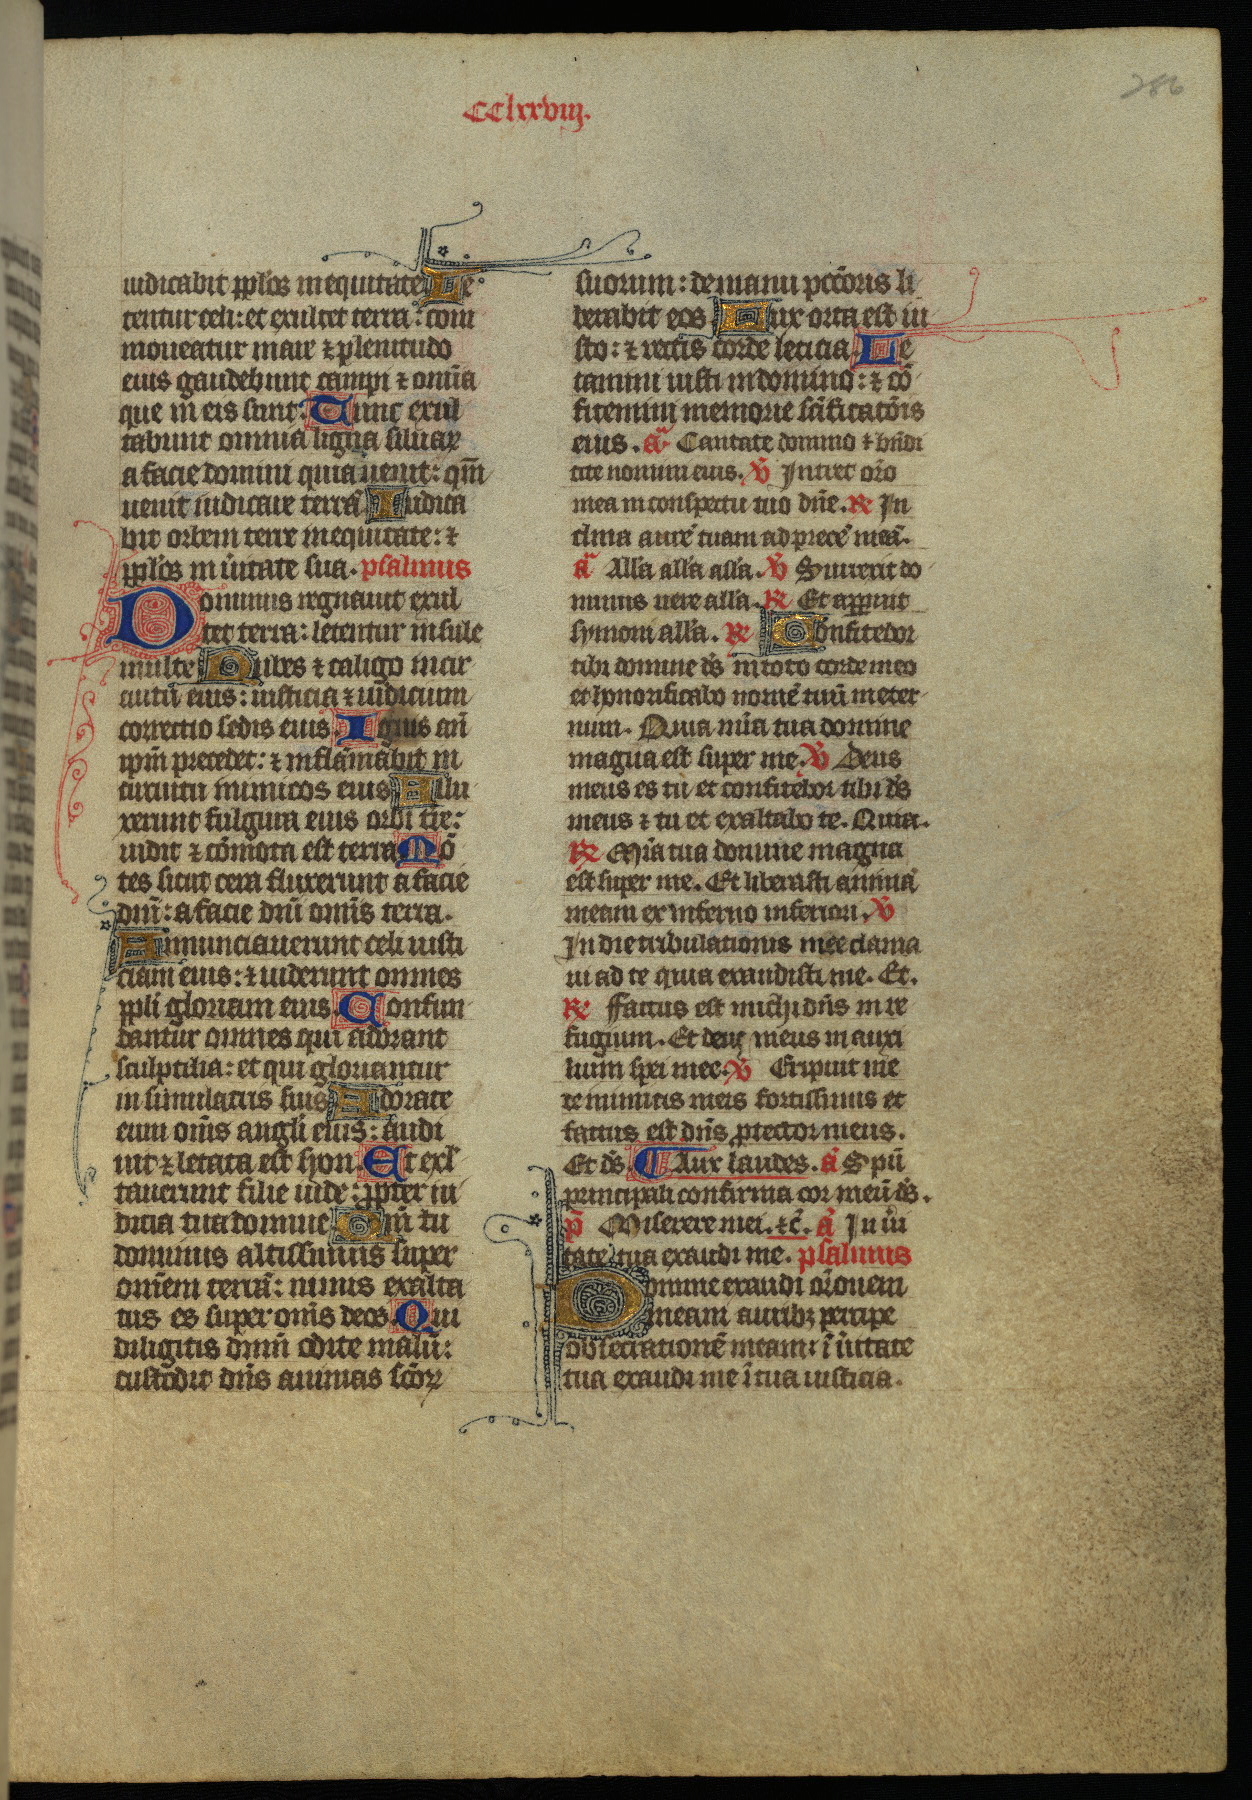 CClxxviij.
286
iudicabit pplos in equitate Le
tentur celi: et exultet terra: com
moueatur mare ⁊ plenitudo
eius gaudebunt campi ⁊ om̄ia
que in eis sunt. Tunc exul
tabunt omnia ligna siluaꝝ
a facie domini quia uenit: qm̄
uenit iudicare terrā Iudica
bit orbem terre in equitate: ⁊
pplos in ūitate sua. psalmus
Dominus regnauit exul
tet terra: letentur insule
multe Nubes ⁊ caligo in cir
cuitū eius: iusticia ⁊ iudicium
correctio sedis eius. Ignis an̄
ipm̄ precedet: ⁊ inflāmabit in
circuitu inimicos eius Allu
xerunt fulgura eius orbi tr̄e:
uidit ⁊ cōmota est terra Mō
tes sicut cera fluxerunt a facie
dn̄i: a facie dn̄i om̄is terra.
Annunciauerunt celi iusti
ciam eius: ⁊ uiderunt omnes
ppli gloriam eius. Confun
dantur omnes qui adorant
sculptilia: et qui gloriantur
in simulacris suis Adorate
eum om̄s angli eius: audi
uit ⁊ letata est syon. Et exl
tauerunt filie iude: ꝓpter iu
dicia tua domine Qm̄ tu
dominus altissimus super
omēm terrā: nimis exalta
tus es super om̄s deos. Qui
diligitis dn̄m odite malū:
custodit dn̄s animas sc̄oꝝ
suorum: de manu pcc̄oris li
berabit eos Lux orta est iu
sto: ⁊ rectis corde leticia. Le
tamini iusti in domino: ⁊ cō
fitemini memorie sc̄ificatōis
eius. a͞ Cantate domino ⁊ bn̄di
cite nomini eius. ℣ Intret or̄o
mea in conspectu tuo dn̄e. ℟ In
clina aurē tuam ad precē meā.
a͞ Alla alla alla. ℣ Surrexit do
minus uere alla. ℟ Et apparuit
symoni alla. ℟ Confitebor
tibi domine ds̄ in toto corde meo
et honorificabo nomē tuū in eter
num. Quia mīa tua domine
magna est super me. ℣ Deus
meus es tu et confitebor tibi ds̄
meus ⁊ tu et exaltabo te. Quia.
℟ Mīa tua domine magna
est super me. Et liberasti animā
meam ex inferno inferiori. ℣
In die tribulationis mee clama
ui ad te quia exaudisti me. Et.
℟ Factus est michi dn̄s in re
fugium. Et deus meus in auxi
lium spei mee. ℣ Eripuit me
de inimicis meis fortissimis et
factus est dn̄s ꝓtector meus.
Et ds̄. Aux laudes. a͞ Spū
principali confirma cor meū ds̄.
p̄ Miserere mei. ⁊c̄. a͞ In ūi
tate tua exaudi me. psalmus
Domine exaudi or̄onem
meam auribꝫ percipe
obsecrationē meam: ī ūitate
tua exaudi me ī tua iusticia.